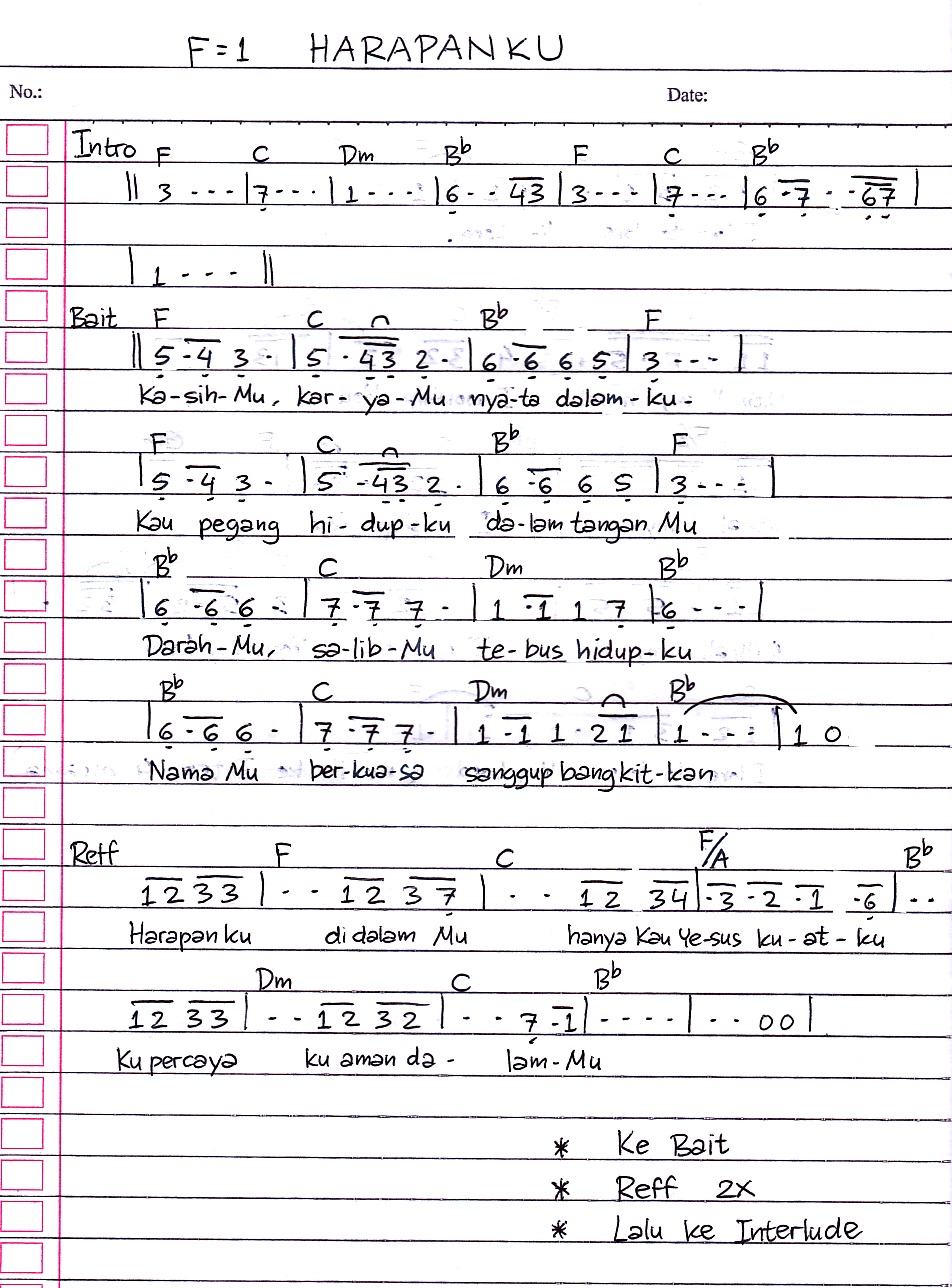 F=1 HARAPANKU
No.: Date:
Intro F C Dm Bb F C Bb
|| 3 - - - | 7 - - - | 1 - - - - | 6 - - 43 | 3 - - - | 7 - - - | 6 -7 - -67 |
| 1 - - - ||
Bait F C Bb F
|| 5 -4 3 - | 5 -43 2 - | 6 -6 6 5 | 3 - - - |
Ka-sih-Mu, kar-ya-Mu nya-ta dalam-ku
F C Bb F
| 5 -4 3 - | 5 -43 2 - | 6 -6 6 5 | 3 - - - |
Kau pegang hi-dup-ku da-lam tangan Mu
Bb C Dm Bb
| 6 -6 6 - | 7 -7 7 - | 1 -1 1 7 | 6 - - - |
Darah-Mu, sa-lib-Mu te-bus hidup-ku
Bb C Dm Bb
| 6 -6 6 - | 7 -7 7 - | 1 -1 1 -21 | 1 - - - | 1 0
Nama Mu ber-kua-sa sanggup bangkit-kan
Reff F C F/A Bb
12 33 | - - 12 37 | - - 12 34 | -3 -2 -1 -6 | - -
Harapanku di dalam Mu hanya Kau Ye-sus ku-at-ku
Dm C Bb
12 33 | - - 12 32 | - - 7 -1 | - - - - | - - 00 |
Ku percaya ku aman da- lam-Mu
* Ke Bait
* Reff 2X
* Lalu ke Interlude